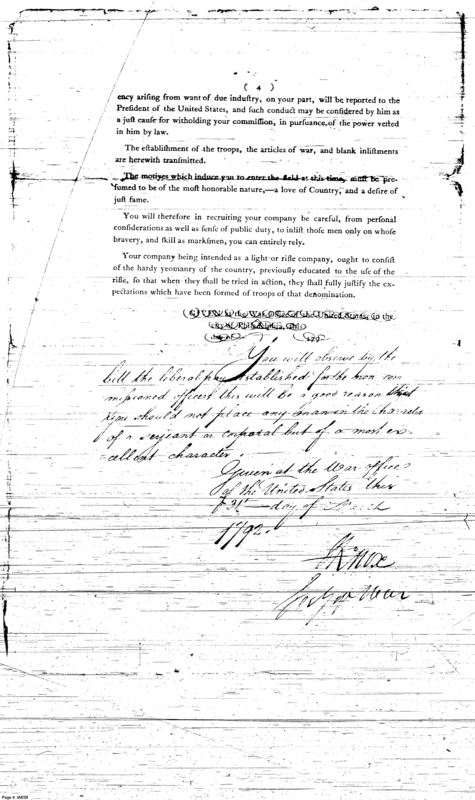 ( 4 )
ency ariſing from want of due induſtry, on your part, will be reported to the
Preſident of the United States, and ſuch conduct may be conſidered by him as
a juſt cauſe for witholding your commiſſion, in purſuance of the power veſted
in him by law.
The eſtabliſhment of the troops, the articles of war, and blank inliſtments
are herewith tranſmitted.
The motives which induce you to enter the field at this time, muſt be pre-
ſumed to be of the moſt honorable nature,—a love of Country, and a deſire of
juſt fame.
You will therefore in recruiting your company be careful, from perſonal
conſiderations as well as ſenſe of public duty, to inliſt thoſe men only on whoſe
bravery, and ſkill as markſmen, you can entirely rely.
Your company being intended as a light or rifle company, ought to conſiſt
of the hardy yeomanry of the country, previouſly educated to the uſe of the
rifle, ſo that when they ſhall be tried in action, they ſhall fully juſtify the ex-
pectations which have been formed of troops of that denomination.
GIVEN at the War Office of the United States, in the
city of Philadelphia, this
You will observe by the
bill the liberal pay established for the non com
missioned officers this will be a good reason
you should not place any man in the character
of a serjeant or corporal but of a most ex-
=cellent character.
Given at the War office
of the United States this
31st day of March
1792.
HKnox
Secy of War
Page 4 IAE08